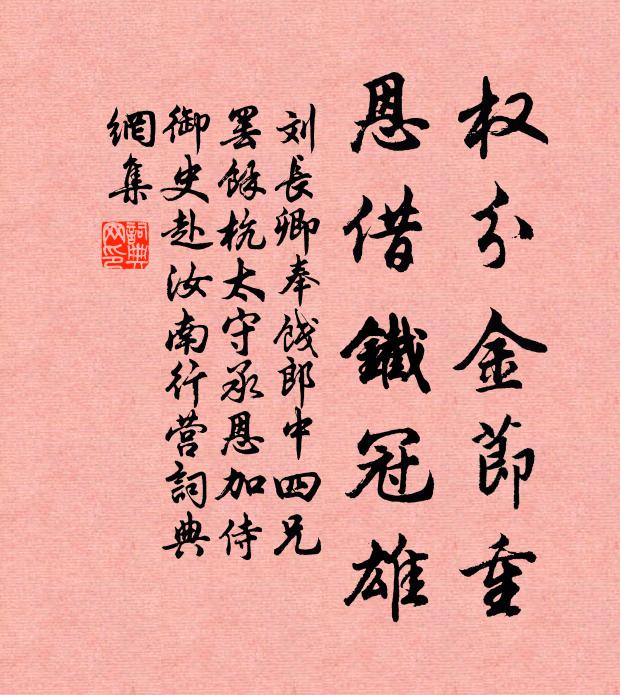 权分金節重
恩借鐵冠雄
刘長卿奉餞郎中四兄
罢餘杭太守承恩加侍
御史赴汝南行营詞典
網集
詞典
网印